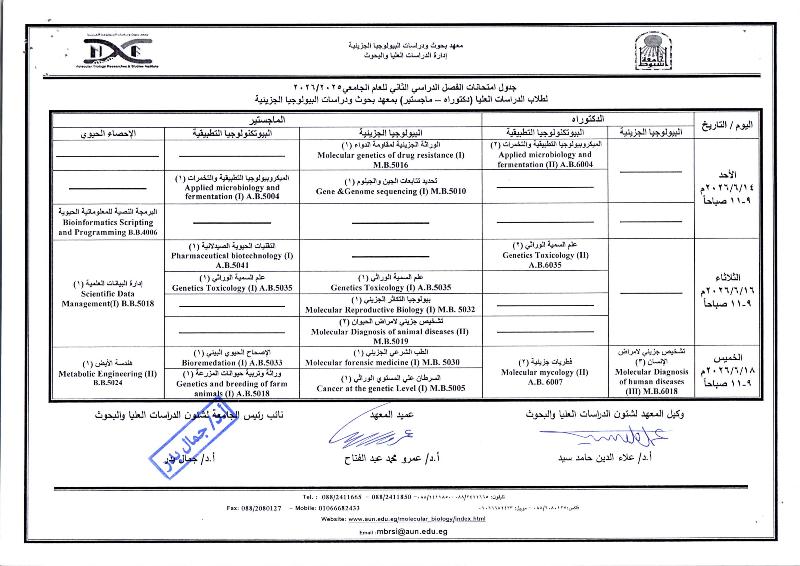 معهد بحوث ودراسات البيولوجيا الجزيئية
إدارة الدراسات العليا والبحوث
Molecular Biology Researches & Studies Institute
جدول امتحانات الفصل الدراسي الثاني للعام الجامعي ٢٠٢٦/٢٠٢٥
لطلاب الدراسات العليا (دكتوراه – ماجستير) بمعهد بحوث ودراسات البيولوجيا الجزيئية
اليوم / التاريخ
الدكتوراه
الماجستير
البيولوجيا الجزيئية
البيوتكنولوجيا التطبيقية
البيولوجيا الجزيئية
البيوتكنولوجيا التطبيقية
الإحصاء الحيوي
الأحد
٢٠٢٦/٦/١٤م
٩-١١ صباحاً
الميكروبيولوجيا التطبيقية والتخمرات (٢)
Applied microbiology and
fermentation (II) A.B.6004
الوراثة الجزيئية لمقاومة الدواء (١)
Molecular genetics of drug resistance (I)
M.B.5016
تحديد تتابعات الجين والجينوم (١)
Gene &Genome sequencing (I) M.B.5010
الميكروبيولوجيا التطبيقية والتخمرات (١)
Applied microbiology and
fermentation (I) A.B.5004
البرمجة النصية للمعلوماتية الحيوية
Bioinformatics Scripting
and Programming B.B.4006
الثلاثاء
٢٠٢٦/٦/١٦م
٩-١١ صباحاً
علم السمية الوراثي (٢)
Genetics Toxicology (II)
A.B.6035
التقنيات الحيوية الصيدلانية (١)
Pharmaceutical biotechnology (I)
A.B.5041
علم السمية الوراثي (١)
Genetics Toxicology (I) A.B.5035
علم السمية الوراثي (١)
Genetics Toxicology (I) A.B.5035
بيولوجيا التكاثر الجزيئي (١)
Molecular Reproductive Biology (I) M.B. 5032
تشخيص جزيئي لامراض الحيوان (٢)
Molecular Diagnosis of animal diseases (II)
M.B.5019
إدارة البيانات العلمية (١)
Scientific Data
Management(I) B.B.5018
الخميس
٢٠٢٦/٦/١٨م
٩-١١ صباحاً
تشخيص جزيئي لامراض
الإنسان (٣)
Molecular Diagnosis
of human diseases
(III) M.B.6018
فطريات جزيئية (٢)
Molecular mycology (II)
A.B. 6007
الطب الشرعي الجزيئي (١)
Molecular forensic medicine (I) M.B. 5030
السرطان علي المستوي الوراثي (١)
Cancer at the genetic Level (I) M.B.5005
الإصحاح الحيوي البيئي (١)
Bioremedation (I) A.B.5033
وراثة وتربية حيوانات المزرعة (١)
Genetics and breeding of farm
animals (I) A.B.5018
هندسة الأيض (١)
Metabolic Engineering (II)
B.B.5024
وكيل المعهد لشئون الدراسات العليا والبحوث
عميد المعهد
نائب رئيس الجامعة لشئون الدراسات العليا والبحوث
أ.د/ علاء الدين حامد سيد
أ.د/ عمرو محمد عبد الفتاح
أ.د/ جمال بدر
أ.د/ جمال بدر
Tel. : 088/2411665 - 088/2411850
Fax: 088/2080127 - Mobile: 01066682433
Website: www.aun.edu.eg/molecular_biology/index.html
Email :mbrsi@aun.edu.eg